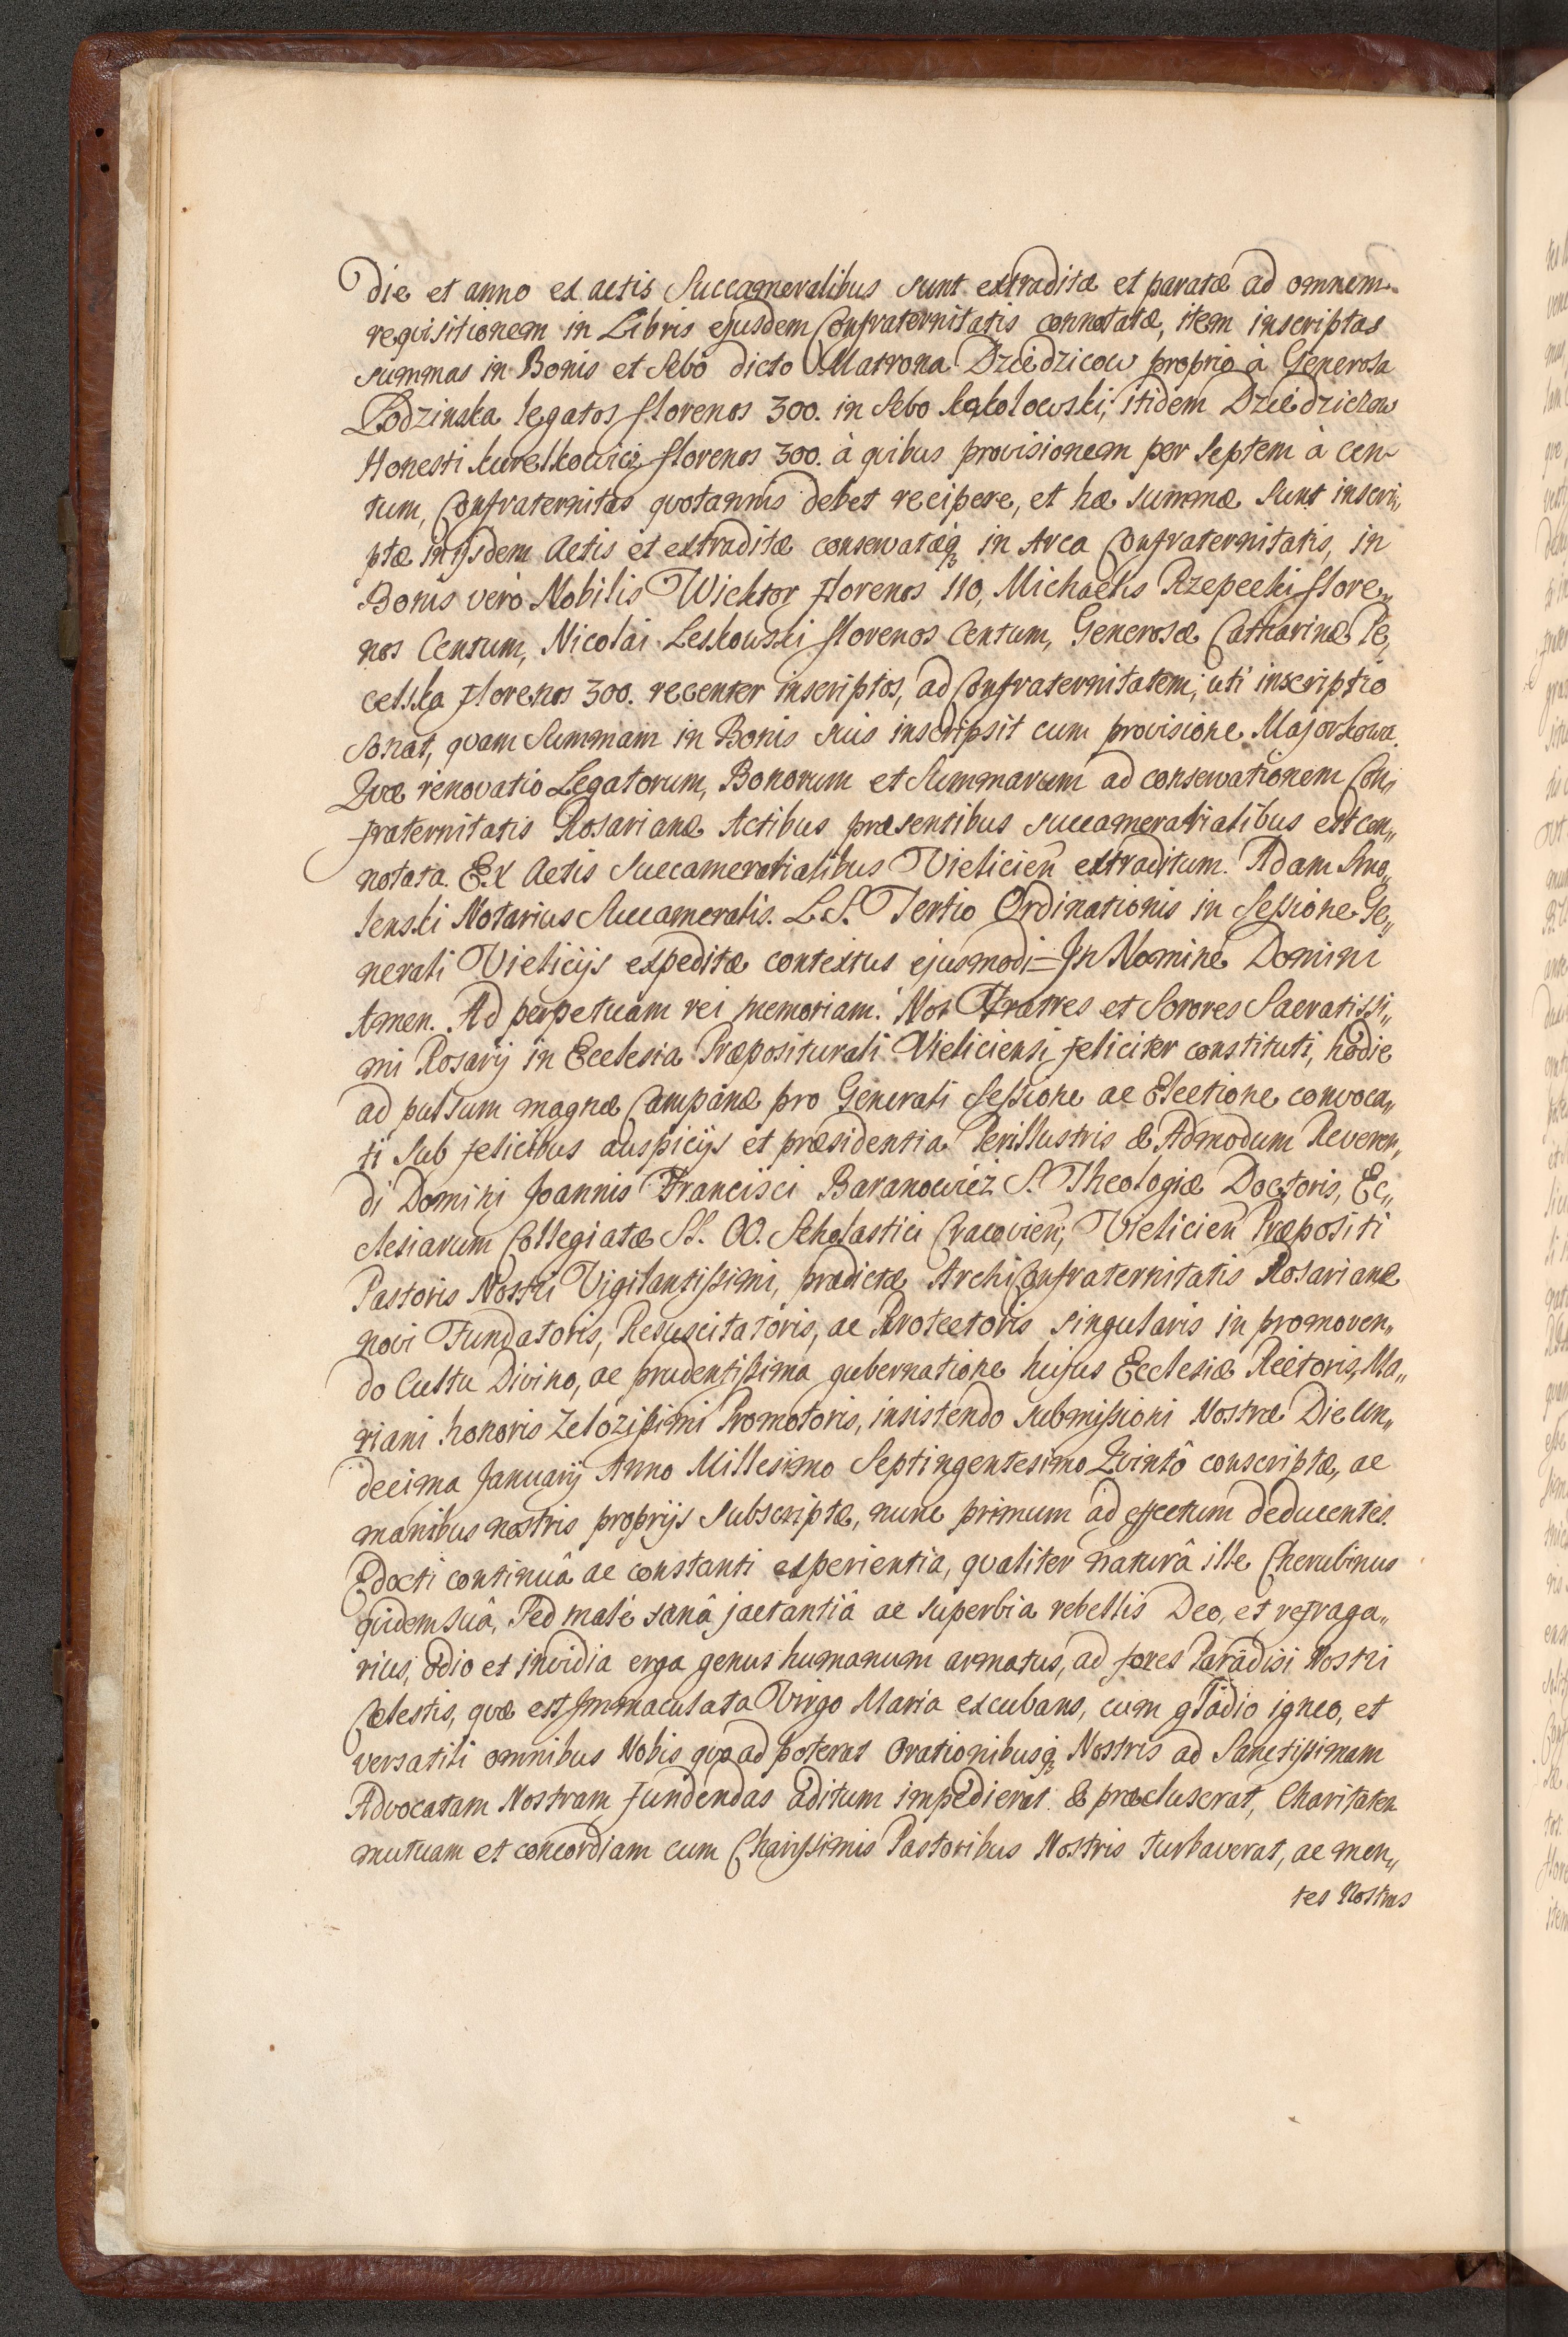 Die et anno ex actis Succameralibus sunt extraditæ et paratæ ad omnem
requisitionem in Libris ejusdem Confraternitatis connotatæ, item inscriptas
summas in Bonis et Sebo dicto Matrona Dziedzicow proprio à Generosa
Łodzinska legatos florenos 300. in Sebo Kąkolowski, itidem Dziedzicow
Honesti Kurelkowicz florenos 300. à quibus provisionem per Septem à Cen-
tum, Confraternitas quotannis debet recipere, et hæ summæ sunt inscri„
ptæ in ijsdem Actis et extraditæ conservatæq in Arca Confraternitatis, in
Bonis verò Nobilis Wicktor florenos 110, Michaelis Rzepecki flore„
nos Centum, Nicolai Leskowski florenos Centum, Generosæ Catharinæ Pe„
celska florenos 300. recenter inscriptos, ad Confraternitatem, uti inscriptio
sonat, quam Summam in Bonis suis inscripsit cum provisione Majorkowa.
Quæ renovatio Legatorum, Bonorum et Summarum ad conservationem Con„
fraternitatis Rosarianæ Actibus præsentibus succameratialibus est con„
notata. Ex Actis Succameratialibus Vielicien̄ extraditum. Adam Smo„
lenski Notarius Succameralis. L.S. Tertio Ordinationis in Sessione Ge„
nerali Vielicijs expeditæ contextus ejusmodi = In Nomine Domini
Amen. Ad perpetuam rei memoriam. Nos Fratres et Sorores Sacratissi„
mi Rosarij in Ecclesia Præpositurali Vieliciensi feliciter constituti, hodie
ad pulsum magnæ Campanæ pro Generali Sessione ac Electione convoca„
ti Sub felicibus auspicijs et præsidentia Perillustris & Admodum Reveren„
di Domini Joannis Francisci Baranowicz S. Theologiæ Doctoris, Ec„
clesiarum Collegiatæ SS. OO. Scholastici Cracovien̄, Vielicien̄ Præpositi
Pastoris Nostri Vigilantissimi, prædictæ ArchiConfraternitatis Rosarianæ
novi Fundatoris, Resuscitatoris, ac Protectoris singularis in promoven„
do Cultu Divino, ac prudentissima gubernatione hujus Ecclesiæ Rectoris, Ma„
riani honoris Zelozissimi Promotoris, insistendo submissioni Nostræ Die Un„
decima Januarij Anno Millesimo Septingentesimo Quintô conscriptæ, ac
manibus nostris proprijs subscriptæ, nunc primum ad effectum deducentes.
Edocti continuâ ac constanti experientia, qualiter naturâ ille Cherubinus
quidem suâ, Sed malè sanâ jactantiâ ac superbia rebellis Deo, et refraga„
rius, odio et invidia erga genus humanum armatus, ad fores Paradisi Nostri
Cælestis, quæ est Immaculata Virgo Maria excubans, cum gladio igneo, et
versatili omnibus Nobis quoad poterat Orationibusq Nostris ad Sanctissimam
Advocatam Nostram fundendas aditum impedierat & præcluserat, Charitatem
mutuam et concordiam cum Charissimis Pastoribus Nostris turbaverat, ac men„
tes Nostras